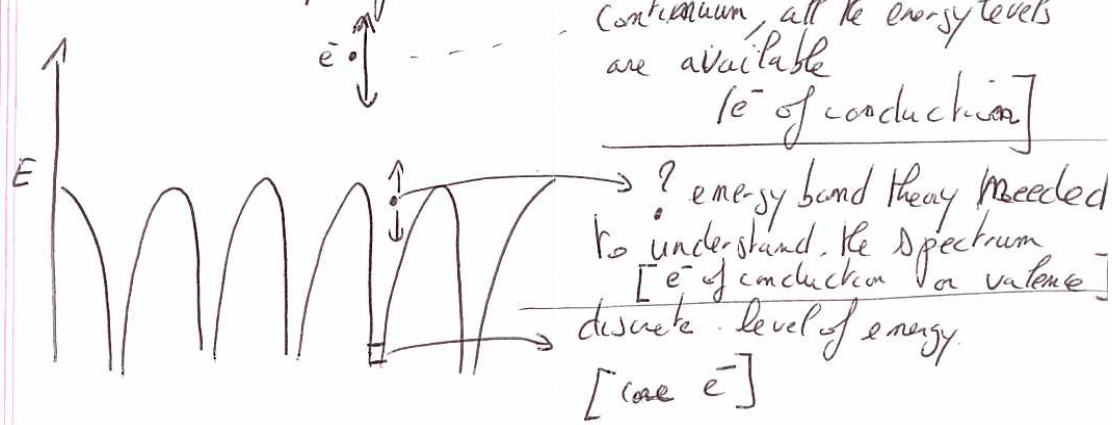 continuum, all the energy levels
are available
[e⁻ of conduction]
e⁻
E
? energy band theory needed
to understand the spectrum
[e⁻ of conduction or valence]
discrete level of energy.
[core e⁻]